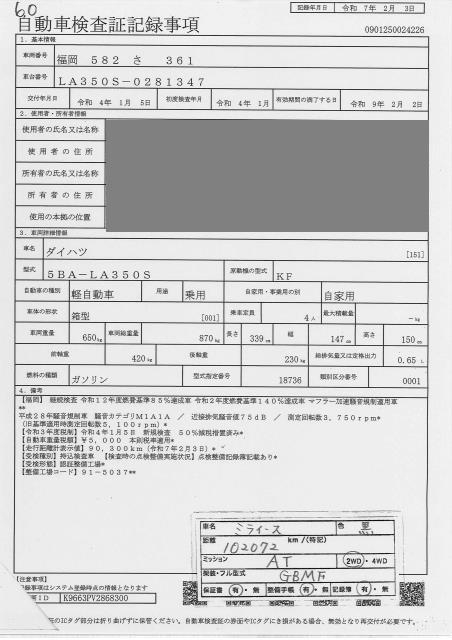 60
自動車検査証記録事項
記録年月日 令和 7年 2月 3日
0901250024226
1. 基本情報
車両番号 福岡 582 さ 361
車台番号 LA350S-0281347
交付年月日 令和 4年 1月 5日 初度検査年月 令和 4年 1月 有効期間の満了する日 令和 9年 2月 2日
2. 使用者・所有者情報
使用者の氏名又は名称
使用者の住所
所有者の氏名又は名称
所有者の住所
使用の本拠の位置
3. 車両詳細情報
車名 ダイハツ [151]
型式 5BA-LA350S 原動機の型式 KF
自動車の種別 軽自動車 用途 乗用 自家用・事業用の別 自家用
車体の形状 箱型 [001] 乗車定員 4人 最大積載量 -kg
車両重量 650kg 車両総重量 870kg 長さ 339cm 幅 147cm 高さ 150cm
前軸重 420kg 後軸重 230kg 総排気量又は定格出力 0.65 L
燃料の種類 ガソリン 型式指定番号 18736 類別区分番号 0001
4. 備考
【福岡】 継続検査 令和12年度燃費基準85%達成車 令和2年度燃費基準140%達成車 マフラー加速騒音規制適用車
**
平成28年騒音規制車 騒音カテゴリM1A1A ／ 近接排気騒音値75dB ／ 測定回転数3,750rpm*
(旧基準適用時測定回転数5,100rpm)*
【令和3年度税制】令和4年1月5日 新規検査 50%減税措置済み*
【自動車重量税額】¥5,000 本則税率適用*
【走行距離計表示値】90,300km(令和7年2月3日)*
【受検種別】持込検査車 【検査時の点検整備実施状況】点検整備記録簿記載あり*
【受検形態】認証整備工場*
【整備工場コード】91-5037**
車名 ミライース 色 黒
距離 102072 km /(特記)
ミッション AT 2WD・4WD
類装・フル型式 GBMF
保証書 有・無 整備手帳 有・無 記録簿 有・無
【注意事項】
記録事項はシステム登録時点の情報となります
ID K9663PV2868300
のICタグ部分は折り曲げずに保管ください。自動車検査証の券面やICタグにき損がある場合、無効となり再交付が必要です。